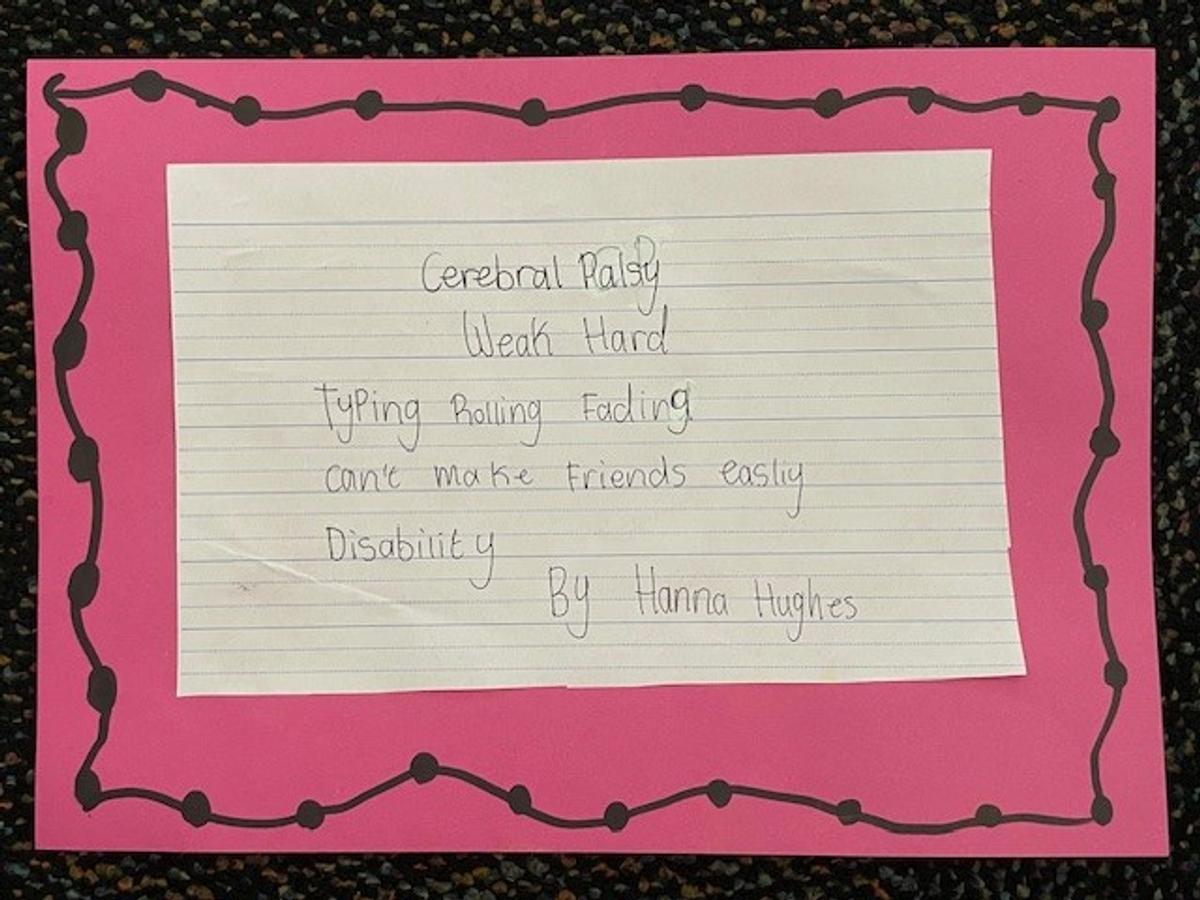 Cerebral Palsy
Weak Hard
Typing Rolling Fading
can't make Friends easliy
Disability
By Hanna Hughes